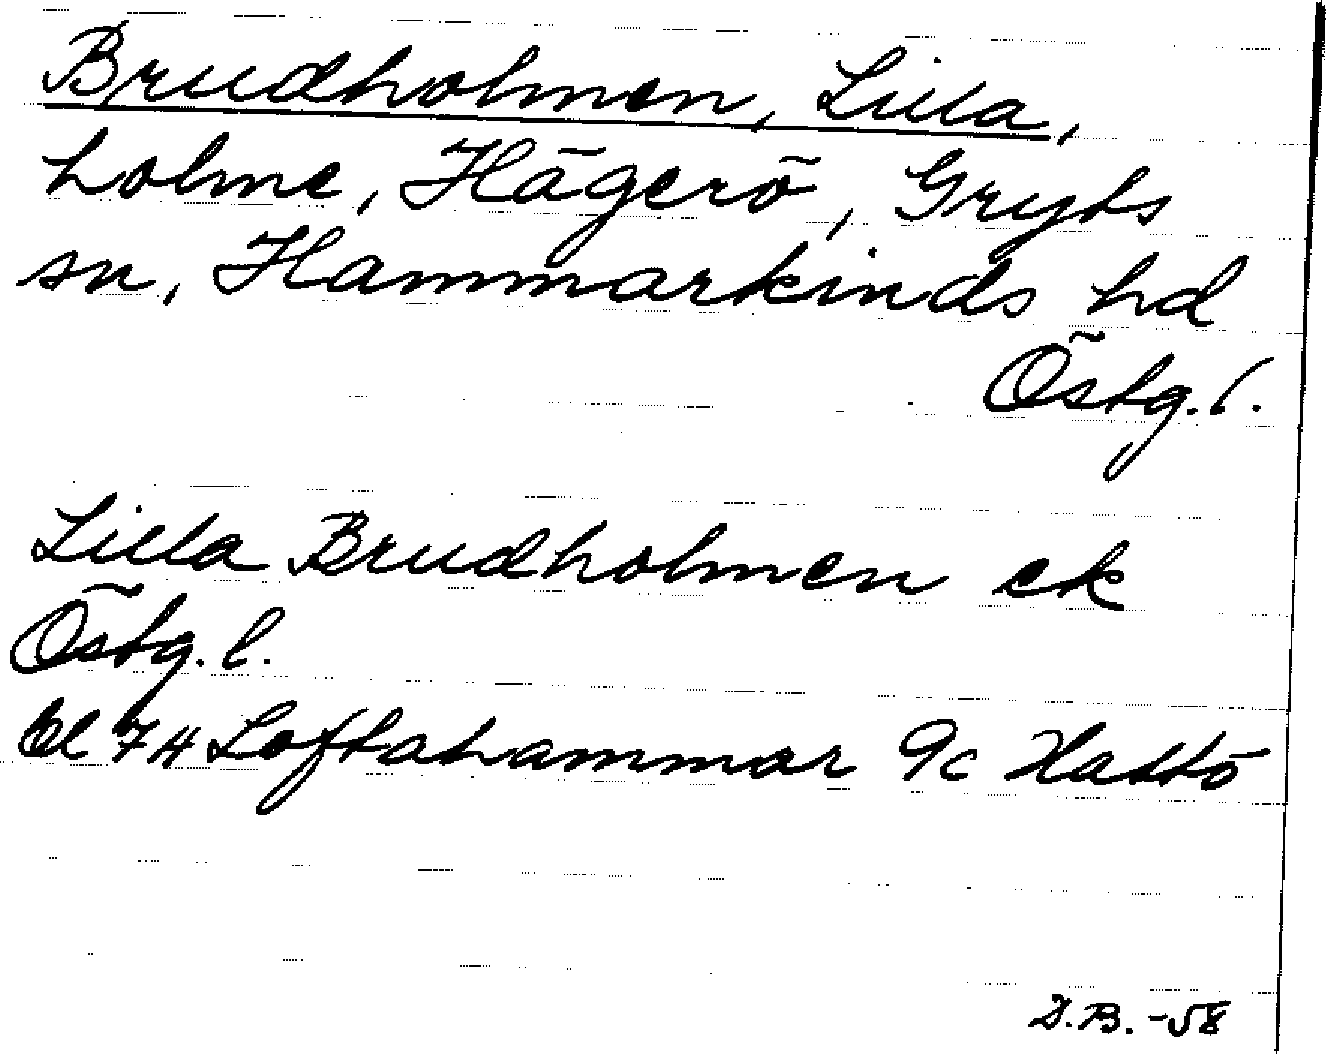 Brudholmen, Lilla,
holme, Hägerö, Gryts
sn, Hammarkinds hd
Östg. l.
Lilla Brudholmen ek
Östg. l.
bl 7H Loftahammar 9c Hattö
D.B. -58